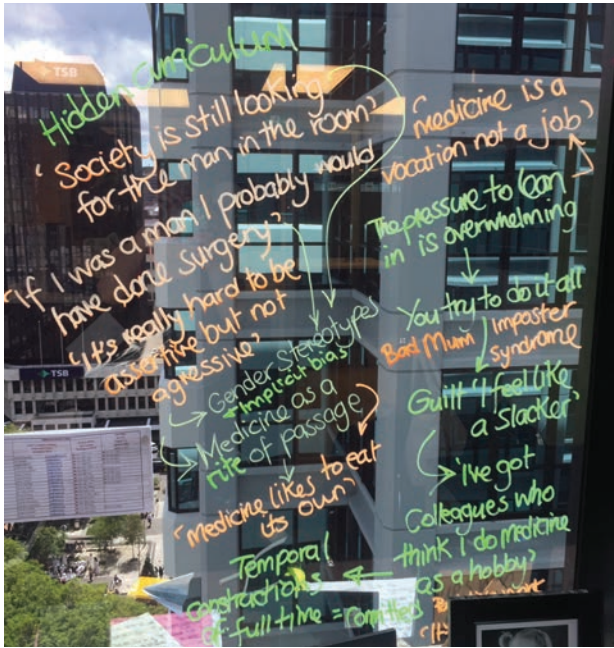 TSB
Hidden curriculum
'Society is still looking
for the man in the room'
'If I was a man I probably would
have done surgery'
'It's really hard to be
assertive but not
agressive'
Gender Stereotypes
implicit bias
Medicine as a
rite of passage
'medicine likes to eat
its own'
Temporal
constructions
of full time =
TSB
'medicine is a
vocation not a job'
The pressure to lean
in is overwhelming
You try to do it all
Bad Mum
Imposter
syndrome
Guilt 'I feel like
a Slacker'
'I've got
Colleagues who
think I do medicine
as a hobby'